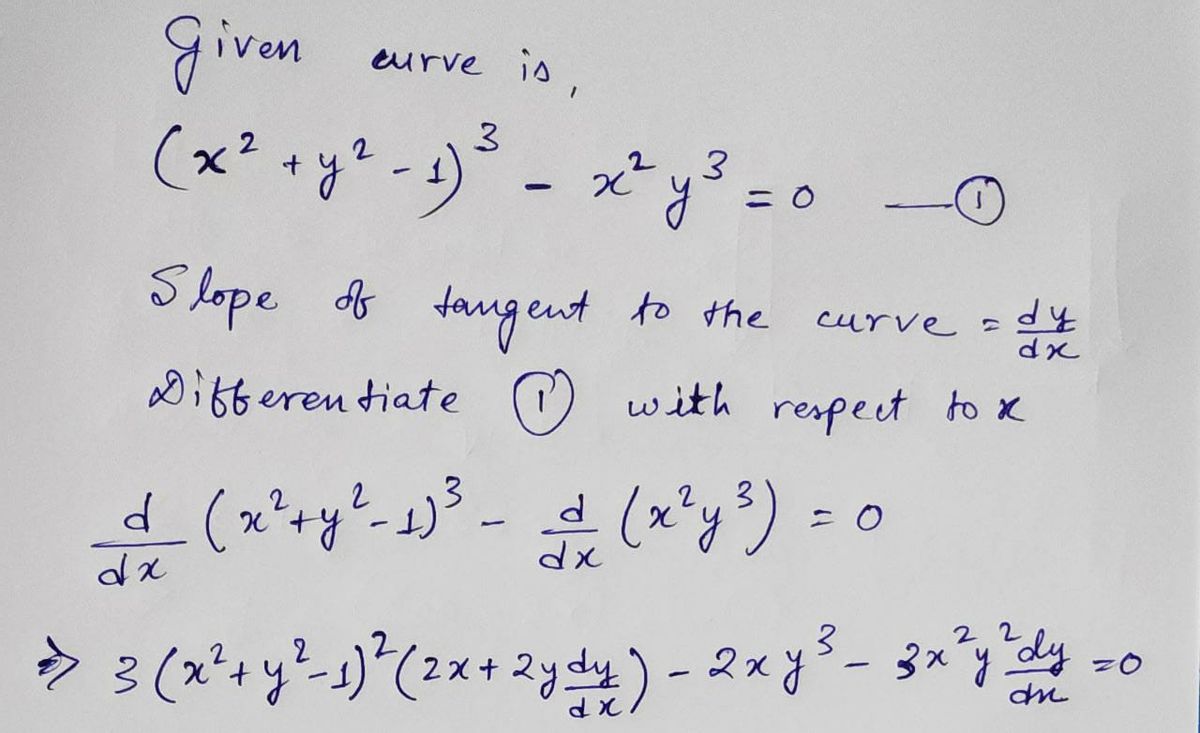 Given curve is,
(x² + y² - 1)³ - x² y³ = 0 —①
Slope of tangent to the curve = dy/dx
Differentiate ① with respect to x
d/dx (x²+y²-1)³ - d/dx (x²y³) = 0
⇒ 3(x²+y²-1)²(2x + 2y dy/dx) - 2xy³ - 3x²y² dy/dx = 0